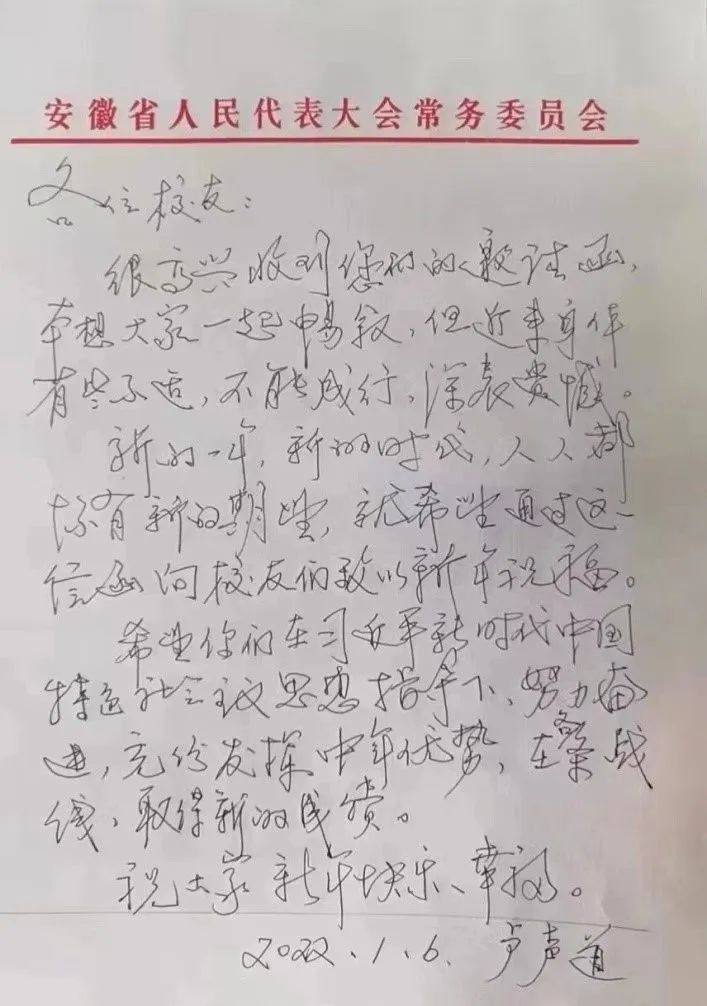 安徽省人民代表大会常务委员会
各位校友:
很高兴收到您们的邀请函,
本想大家一起畅叙,但近来身体
有些不适,不能成行,深表贵憾。
新的一年,新的时代,人人都
怀有新的期望,就希望通过这一
信函向校友们致以新年祝福。
希望你们在习近平新时代中国
特色社会主义思想指导下、努力奋
进,充份发挥中年优势,在各条战
线、取得新的成赏。
祝大家新年快乐、幸福。
2022.1.6. 卢声道